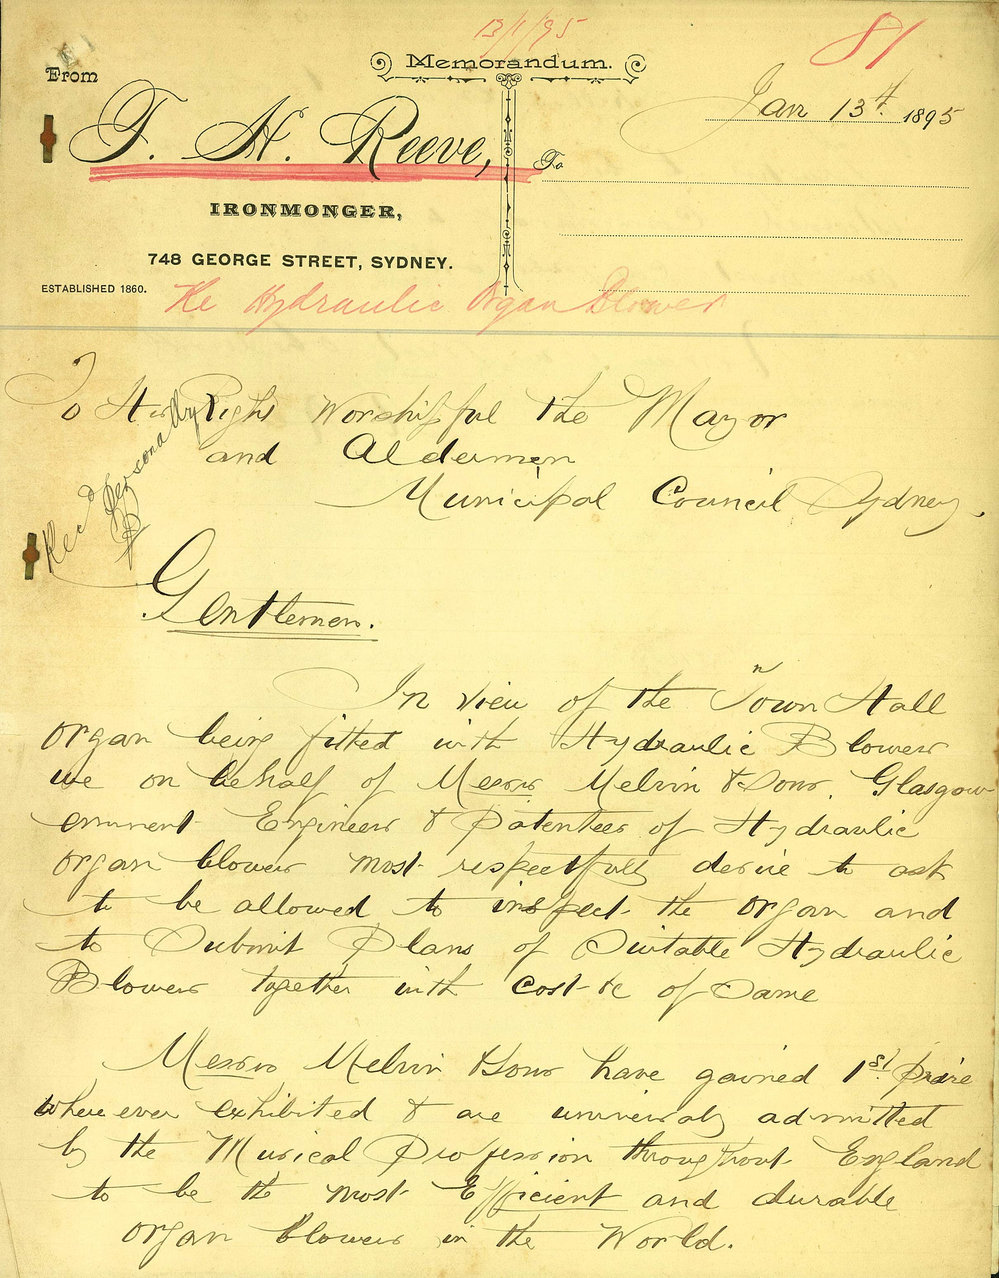 13/1/95
81
From
Memorandum.
Jan 13th 1895
F. H. Reeve,
To
IRONMONGER,
748 GEORGE STREET, SYDNEY.
ESTABLISHED 1860.
Re Hydraulic Organ Blower
To His Right Worshipful the Mayor
and Aldermen
Municipal Council Sydney.
Recd personally
Gentlemen.
In view of the Town Hall
organ being fitted with Hydraulic Blowers
we on behalf of Messrs Melvin & Sons. Glasgow
eminent Engineers & Patentees of Hydraulic
organ blowers most respectfully desire to ask
to be allowed to inspect the organ and
to Submit Plans of Suitable Hydraulic
Blowers together with cost &c of Same
Messrs Melvin & Sons have gained 1st. Prize
where ever exhibited & are universaly admitted
by the Musical Profession throughout England
to be the most Efficient and durable
organ blowers in the World.